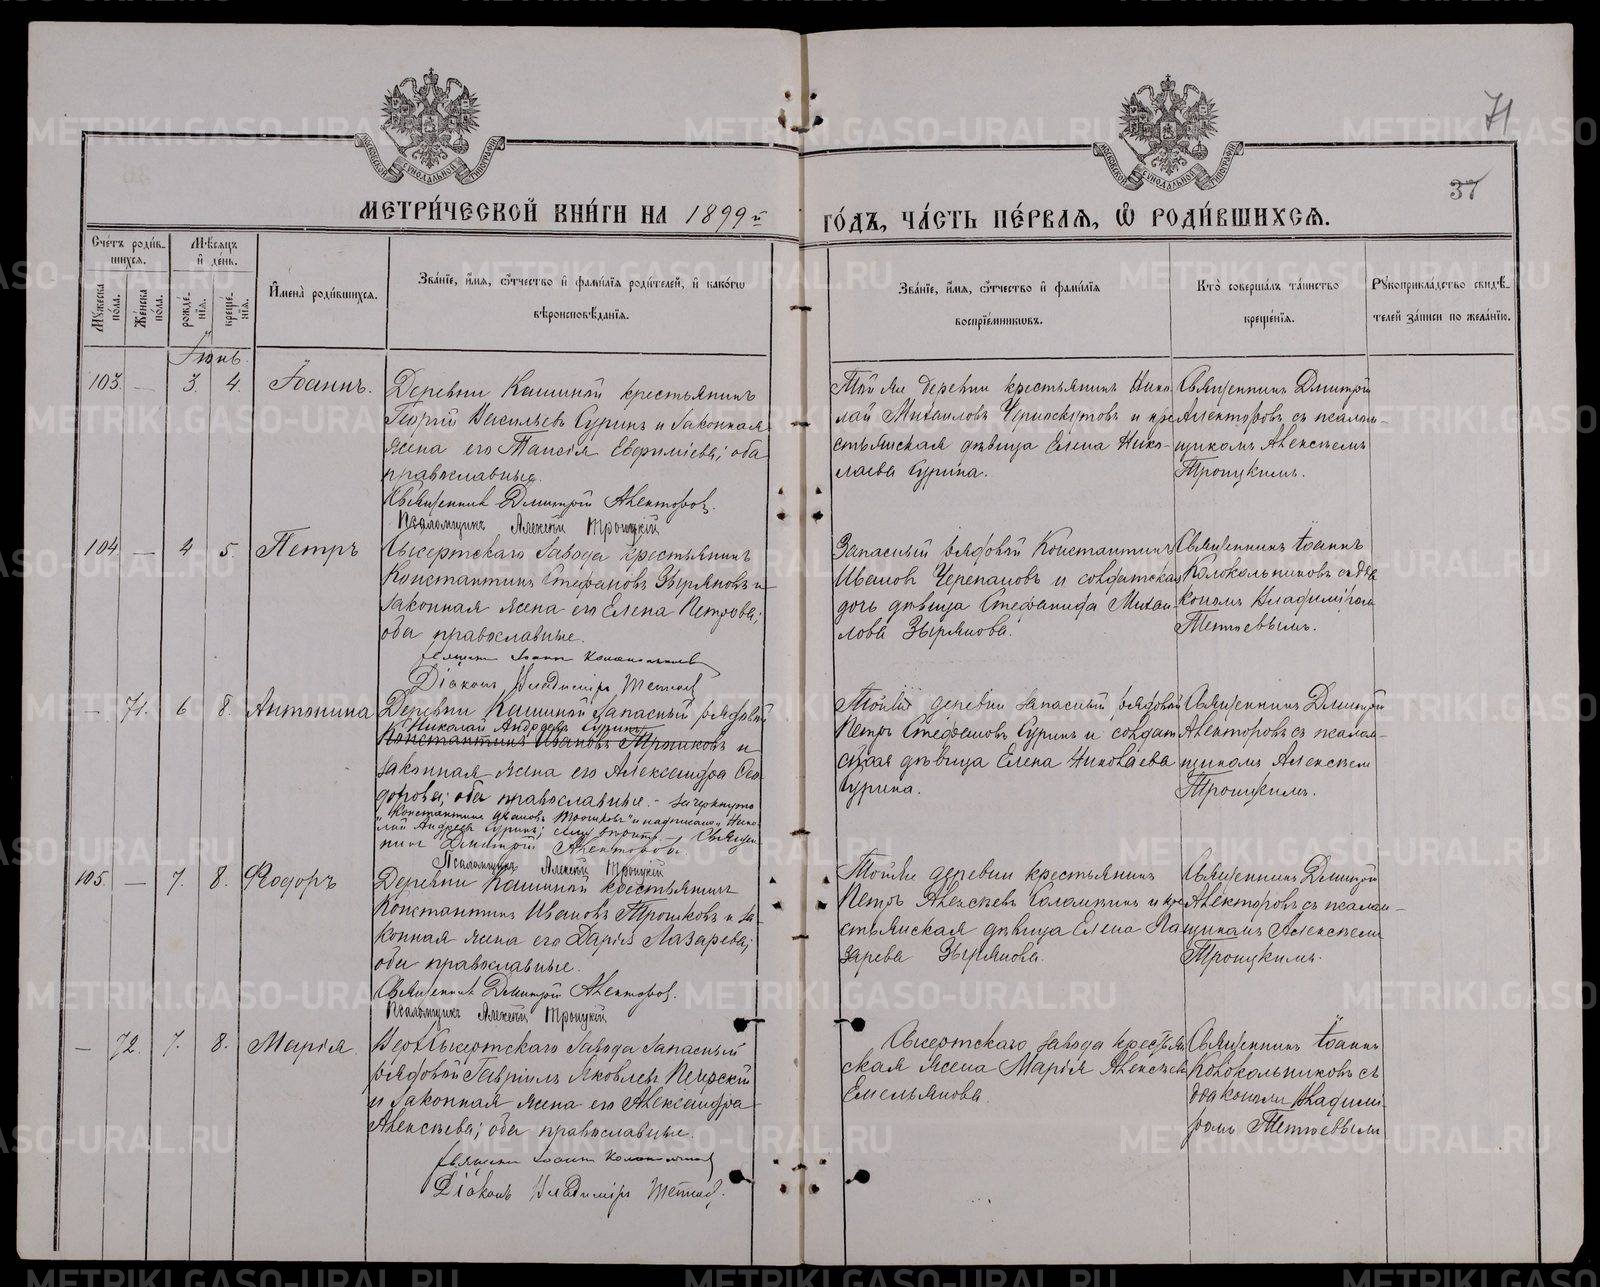 71
37
МЕТРИ́ЧЕСКОЙ КНИ́ГИ НА 1899й
ГО́ДЪ, ЧА́СТЬ ПЕ́РВАЯ, Ѡ РОДИ́ВШИХСЯ.
Сче́тъ роди́вшихся.
Мѣ́сяцъ и́ де́нь.
Му́жеска по́ла.
Же́нска по́ла.
рожде́нїя.
креще́нїя.
И҆мена̀ роди́вшихся.
Зва́нїе, и҆́мя, ѻ҆́тчество и҆ фами́лїя роди́телей, и҆ како́гѡ
вѣроисповѣ́данїя.
Зва́нїе, и҆́мя, ѻ҆́тчество и҆ фами́лїя
воспрїе́мникѡвъ.
Кто̀ соверша́лъ та́инство
креще́нїя.
Рꙋкоприкла́дство свидѣ́телей за́писи по жела́нїю.
Іюнь.
103. — 3 4. Іоаннъ.
Деревни Кашиной крестьянинъ
Георгій Васильевъ Суринъ и законная
жена его Таисія Евфиміева; оба
православные.
Священникъ Димитрій Алекторовъ.
Псаломщикъ Алексѣй Троицкій
Той же деревни крестьянинъ Нико
лай Михаиловъ Черноскутовъ и кре
стьянская дѣвица Елена Нико-
лаева Сурина.
Священникъ Димитрій
Алекторовъ съ псалом-
щикомъ Алексѣемъ
Троицкимъ.
104. — 4 5. Петръ
Сысертскаго завода крестьянинъ
Константинъ Стефановъ Зыряновъ и
законная жена его Елена Петрова;
оба православные.
Священникъ Іоаннъ Колокольниковъ
Діаконъ Владиміръ Тетюевъ
Запасный рядовой Константинъ
Ивановъ Черепановъ и солдатская
дочь дѣвица Стефанида Михаи-
лова Зырянова.
Священникъ Іоаннъ
Колокольниковъ съ діа
кономъ Владиміромъ
Тетюевымъ.
— 71. 6 8. Антонина
Деревни Кашиной запасный рядовой
Николай Андреевъ Суринъ
Константинъ Ивановъ Трошковъ и
законная жена его Александра Ѳео
дорова; оба православные. – Зачеркнуто
„Константинъ Ивановъ Трошковъ“ и надписано „Нико-
лай Андреевъ Суринъ; сему вѣрить. – Священ
никъ Димитрій Алекторовъ
Псаломщикъ Алексѣй Троицкій
Той же деревни запасный рядовой
Петръ Стефановъ Суринъ и солдат
ская дѣвица Елена Николаева
Сурина.
Священникъ Димитрій
Алекторовъ съ псалом-
щикомъ Алексѣемъ
Троицкимъ.
105. — 7. 8. Ѳеодоръ
Деревни Кашиной крестьянинъ
Константинъ Ивановъ Трошковъ и за-
конная жена его Дарія Лазарева;
оба православные.
Священникъ Димитрій Алекторовъ.
Псаломщикъ Алексѣй Троицкій
Той же деревни крестьянинъ
Петръ Алексѣевъ Саламкинъ и кре
стьянская дѣвица Елена Ла
зарева Зырянова.
Священникъ Димитрій
Алекторовъ съ псалом-
щикомъ Алексѣемъ
Троицкимъ.
— 72. 7. 8. Марія.
Верхсысертскаго завода запасный
рядовой Гавріилъ Яковлевъ
и законная жена его Александра
Алексѣева; оба православные.
Священникъ Іоаннъ Колокольниковъ
Діаконъ Владиміръ Тетюевъ.
Сысертскаго завода крестьян
ская жена Марія Алексѣева
Емельянова.
Священникъ Іоаннъ
Колокольниковъ съ
діакономъ Владимі-
ромъ Тетюевымъ